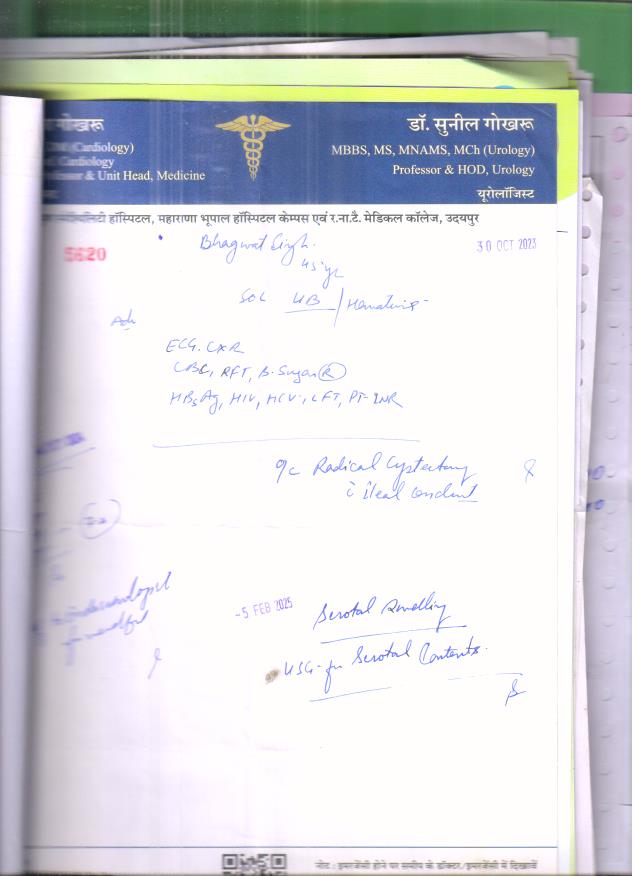 गोखरू
डॉ. सुनील गोखरू
(Cardiology)
MBBS, MS, MNAMS, MCh (Urology)
Cardiology
Professor & HOD, Urology
& Unit Head, Medicine
यूरोलॉजिस्ट
हॉस्पिटल, महाराणा भूपाल हॉस्पिटल केम्पस एवं र.ना.टै. मेडिकल कॉलेज, उदयपुर
5620
Bhagwat Singh
30 OCT 2023
45 yr
SOL UB / Hematuria
Adv
ECG. CXR
CBC, RFT, B. Sugar (R)
HBsAg, HIV, HCV, LFT, PT-INR
Radical Cystectomy
c̄ ileal conduit
-5 FEB 2025
Scrotal Swelling
USG - for Scrotal Contents.
नोट : इमरजेंसी होने पर समीप के डॉक्टर/इमरजेंसी में दिखावें